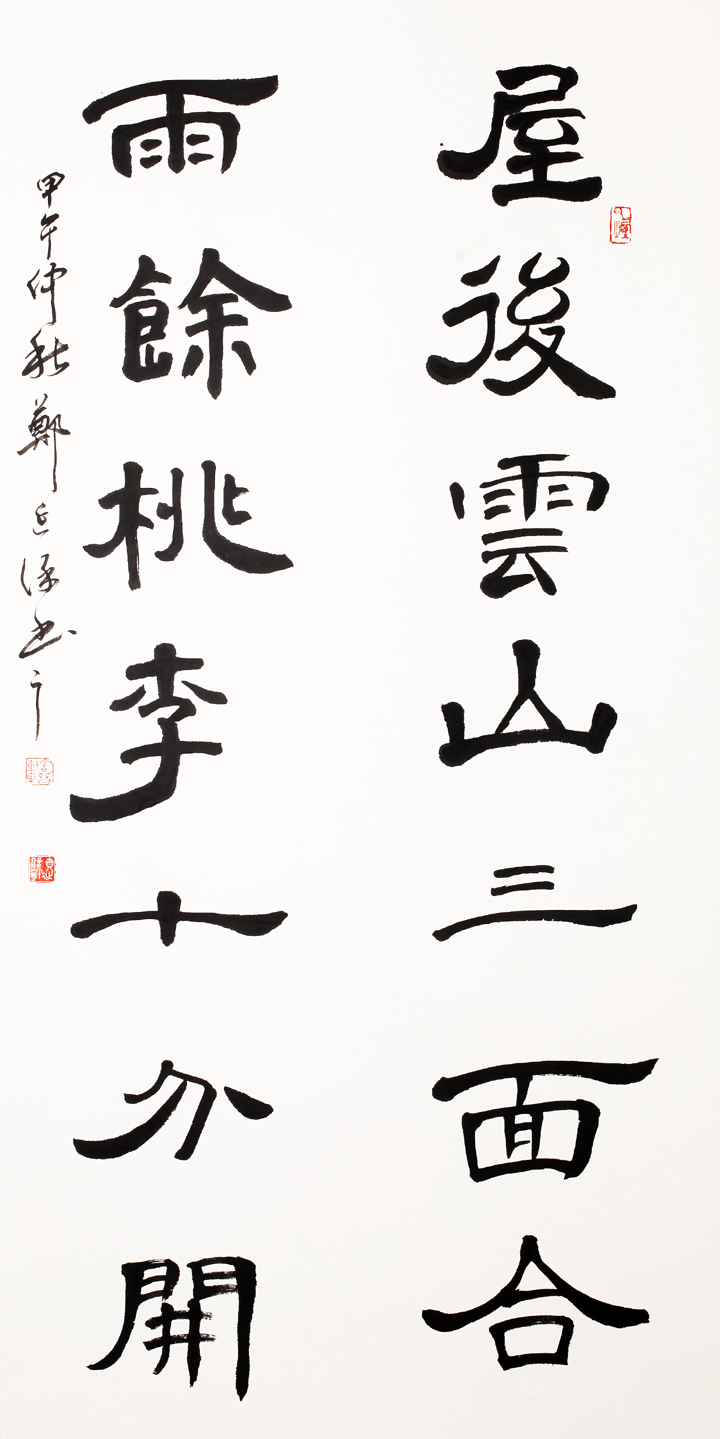 屋後雲山三面合
雨餘桃李十分開
甲午仲秋鄭